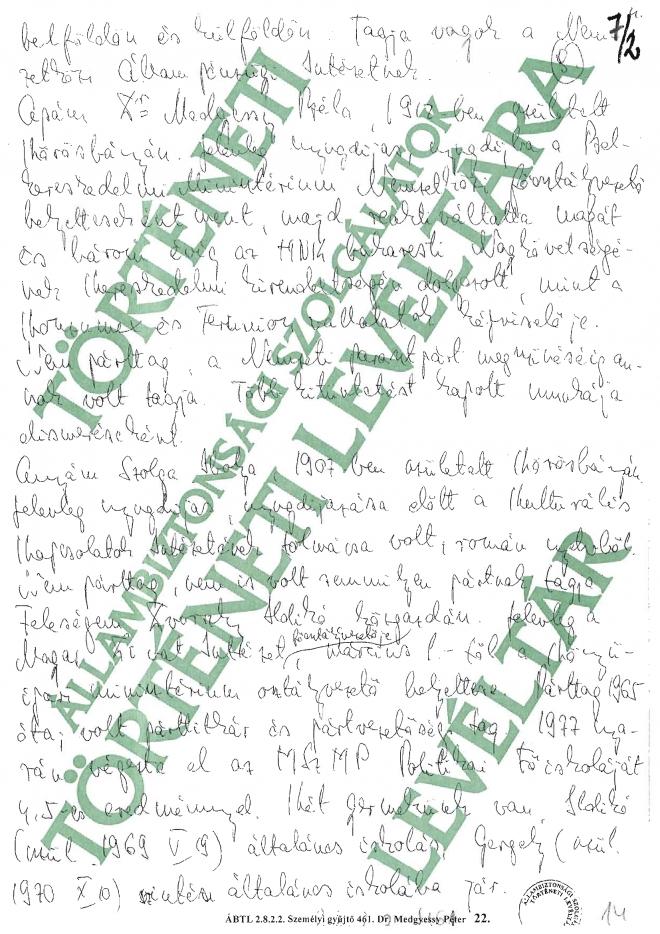 belföldön és külföldön. Tagja vagyok a Nem- 7/2
zetközi Állampénzügyi Intézetnek. 8
Apám Xr= Medgyessy Béla, 1902-ben született
Kőrösbányán. Jelenleg nyugdíjas, nyugdíjba a Bel-
kereskedelmi Minisztérium Nemzetközi főosztályvezető
helyetteseként ment, majd reaktiváltatta magát
és három évig az MNK bukaresti Nagykövetségé-
nek Kereskedelmi kirendeltségén dolgozott, mint a
Konsumex és Ferunion vállalatok képviselője.
Nem párttag, a Nemzeti parasztpárt megszűnéséig an-
nak volt tagja. Több kitüntetést kapott munkája
elismeréseként.
Anyám Szolga Ibolya 1907-ben született Kőrösbányán
jelenleg nyugdíjas, nyugdíjazása előtt a Kulturális
Kapcsolatok Intézetének tolmácsa volt, román nyelvből.
Nem párttag, nem is volt semmilyen pártnak tagja.
Feleségem Ildikó közgazdán. Jelenleg a
főosztályvezetője
Magyar Intézet, március 1.-től a könnyű-
ipari minisztérium osztályvezető helyettese. Párttag 1965
óta, volt párttitkár és pártvezetőségi tag. 1977 nya-
rán végezte el az MSzMP Politikai Főiskoláját
4,5-es eredménnyel. Két gyermekünk van, Ildikó
(szül. 1969 V 19) általános iskolás, Gergely (szül.
1970 X 10) szintén általános iskolába jár.
TÖRTÉNETI
ÁLLAMBIZTONSÁGI SZOLGÁLATOK
TÖRTÉNETI LEVÉLTÁRA
LEVÉLTÁR
ÁBTL 2.8.2.2. Személyi gyűjtő 461. Dr. Medgyessy Péter 22.
14